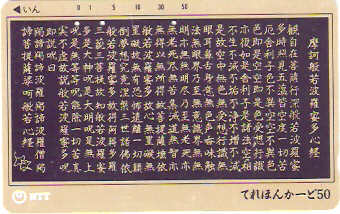 ◀いん 0 1 5 10 30 50
摩訶般若波羅蜜多心経
観自在菩薩行深般若波羅蜜
多時照見五蘊皆空度一切苦
厄舎利子色不異空空不異色
色即是空空即是色受想行識
亦復如是舎利子是諸法空相
不生不滅不垢不浄不増不減
是故空中無色無受想行識無
眼耳鼻舌身意無色声香味触
法無眼界乃至無意識界無無
明亦無無明尽乃至無老死亦
無老死尽無苦集滅道無智亦
無得以無所得故菩提薩埵依
般若波羅蜜多故心無罣礙無
罣礙故無有恐怖遠離一切顛
倒夢想究竟涅槃三世諸仏依
般若波羅蜜多故得阿耨多羅
三藐三菩提故知般若波羅蜜
多是大神呪是大明呪是無上
呪是無等等呪能除一切苦真
実不虚故説般若波羅蜜多呪
即説呪曰
羯諦羯諦波羅羯諦波羅僧羯
諦菩提薩婆訶般若心経
NTT
てれほんかーど50